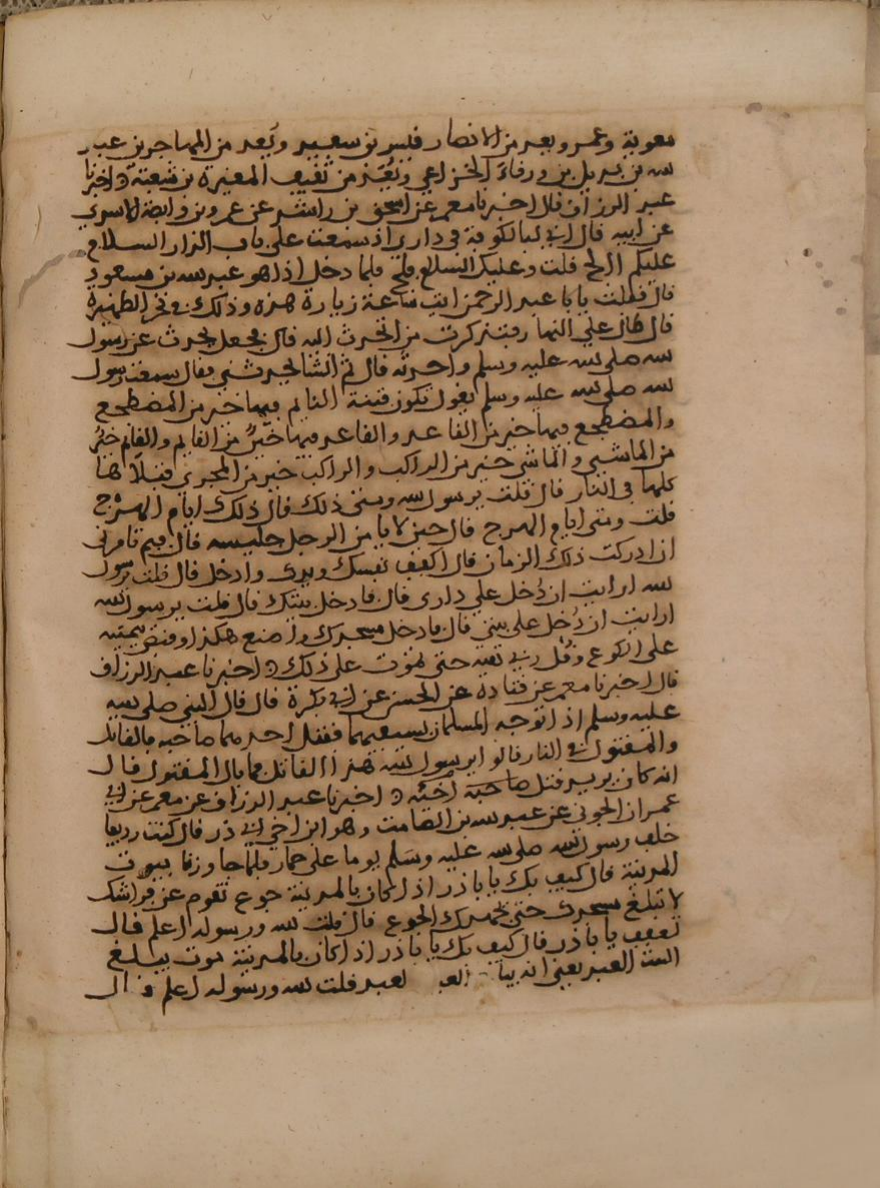 معوية وعمرو ويعد من الانصار قيس بن سعد ويعد من المهاجرين عبد
الله بن بديل بن ورقاء الخزاعي ويعد من ثقيف المغيرة بن شعبة اخبرنا
عبد الرزاق قال اخبرنا معمر عن اسحق بن راشد عن عمرو بن وابصة الاسدي
عن ابيه قال اني لبالكوفة في داري اذ سمعت على باب الدار السلام
عليكم الج قلت وعليك السلام فلج فلما دخل اذا هو عبد الله بن مسعود
قال فقلت يابا عبد الرحمن ايت ساعة زيارة هذه وذلك في نحر الظهيرة
قال طال علي النهار فتذكرت من اتحدث اليه قال فجعل يحدث عن رسول
الله صلى الله عليه وسلم واحدثه قال ثم انشا يحدثني فقال سمعت رسول
الله صلى الله عليه وسلم يقول تكون فتنة النايم فيها خير من المضطجع
والمضطجع فيها خير من القاعد والقاعد فيها خير من القايم والقايم خير
من الماشي والماشي خير من الراكب والراكب خير من المجري قتلاها
كلها في النار قال قلت يرسول الله ومتى ذلك قال ذلك ايام الهرج
قلت ومتى ايام الهرج قال حين لا يامن الرجل جليسه قال فبم تامرني
ان ادركت ذلك الزمان قال اكفف نفسك ويدك وادخل قال قلت يرسول
الله ارايت ان دخل علي داري قال فادخل بيتك قال قلت يرسول الله
ارايت ان دخل على بيتي قال فادخل مسجدك واصنع هكذا وقبض بيمينه
على الكوع وقل ربي الله حتى تموت على ذلك اخبرنا عبد الرزاق
قال اخبرنا معمر عن قتادة عن الحسن عن ابي بكرة قال قال النبي صلى الله
عليه وسلم اذا توجه المسلمان بسيفيهما فقتل احدهما صاحبه فالقاتل
والمقتول في النار قالوا يرسول الله هذا القاتل فما بال المقتول قال
انه كان يريد قتل صاحبه اخيه اخبرنا عبد الرزاق عن معمر عن ابي
عمران الجوني عن عبد الله بن الصامت وهو ابن اخي ابي ذر قال كنت رديفا
خلف رسول الله صلى الله عليه وسلم يوما على حمار فلما جاوزنا بيوت
المدينة قال كيف بك يابا ذر اذا كان بالمدينة جوع تقوم عن فراشك
لا تبلغ مسجدك حتى يجهدك الجوع قال قلت الله ورسوله اعلم قال
تعفف يابا ذر قال كيف بك يابا ذر اذا كان بالمدينة موت يبلغ
البيت العبد يعني انه يباع العبد فلت الله ورسوله اعلم قال